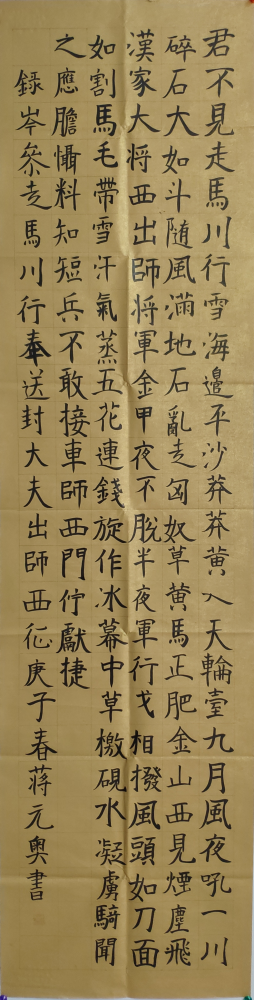 君不見走馬川行雪海邉平沙莽莽黄入天輪臺九月風夜吼一川
碎石大如斗随風滿地石亂走匈奴草黄馬正肥金山西見煙塵飛
漢家大将西出師将軍金甲夜不脫半夜軍行戈相撥風頭如刀面
如割馬毛帶雪汗氣蒸五花連錢旋作冰幕中草檄硯水凝虜騎聞
之應膽懾料知短兵不敢接車師西門佇獻捷
錄岑參走馬川行奉送封大夫出師西征庚子春蔣元奥書